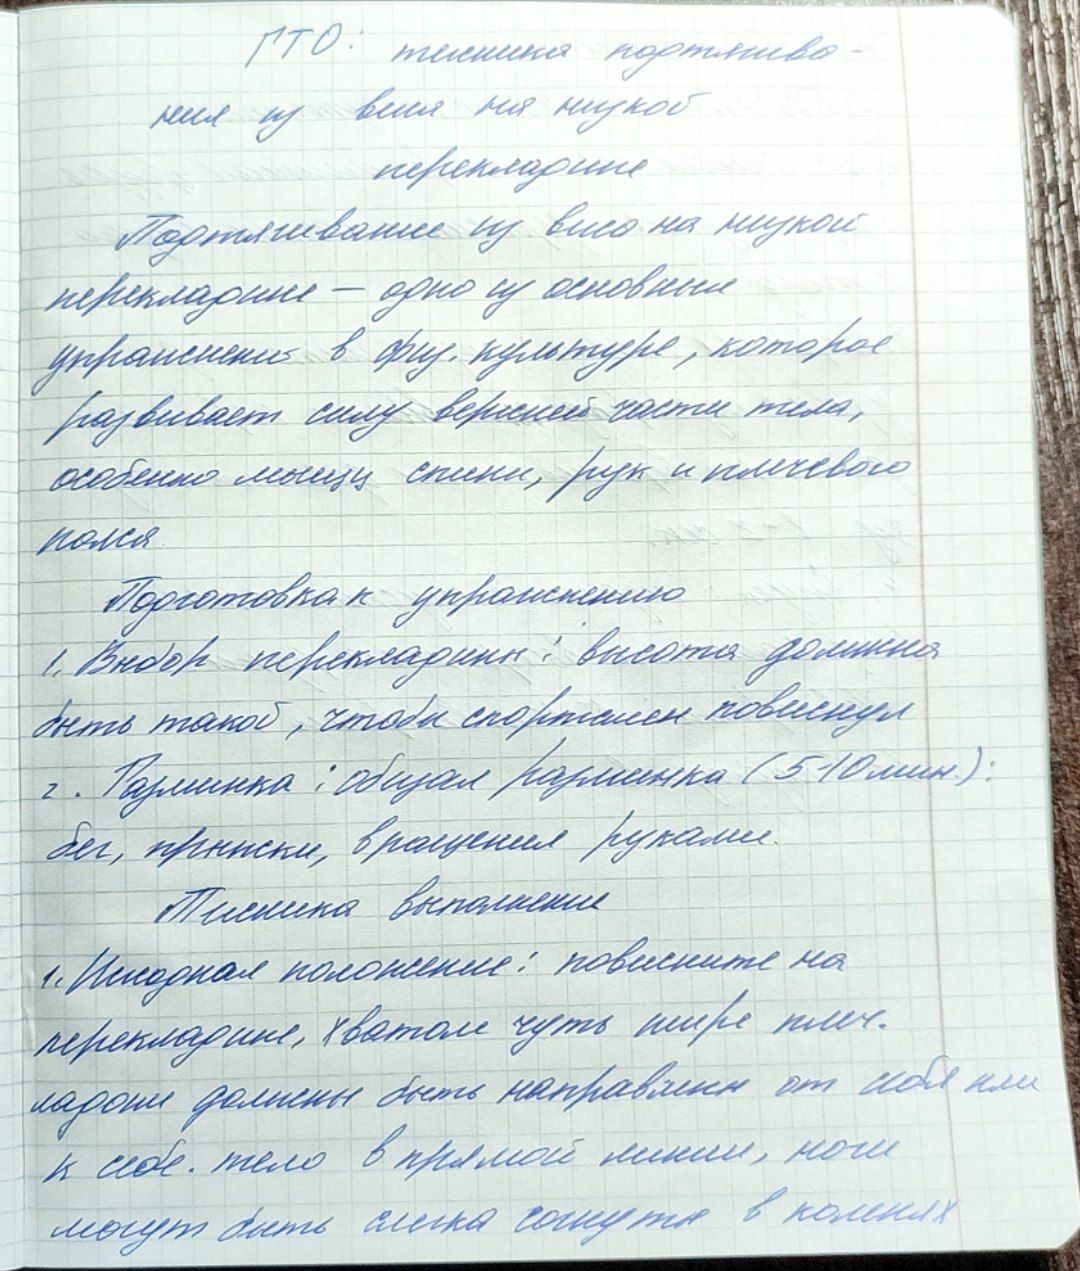 ГТО: техника подтягива-
ния из виса на низкой
перекладине
Подтягивание из виса на низкой
перекладине — одно из основных
упражнений в физ. культуре, которое
развивает силу верхней части тела,
особенно мышц спины, рук и плечевого
пояса
Подготовка к упражнению
1. Выбор перекладины: высота должна
быть такой, чтобы спортсмен повиснул
2. Разминка: общая разминка (5-10 мин.):
бег, прыжки, вращения руками.
Техника выполнение
1. Исходная положение: повисните на
перекладине, хватом чуть шире плеч.
ладони должны быть направлены от себя или
к себе. тело в прямой линии, ноги
могут быть слегка согнуты в коленях